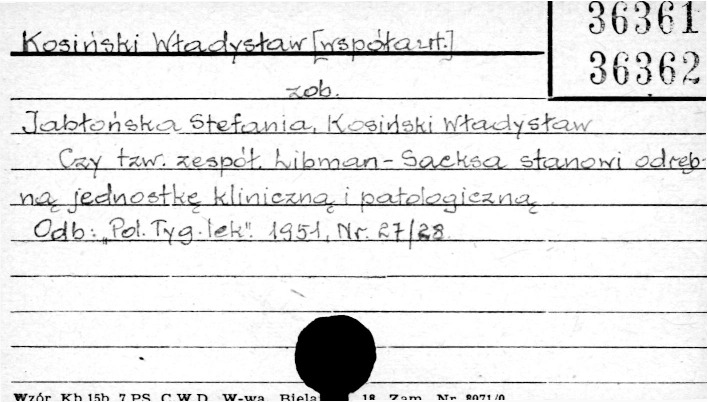 36361
36362
Kosiński Władysław [współaut.]
zob.
Jabłońska Stefania, Kosiński Władysław
Czy tzw. zespół Libman-Sacksa stanowi odręb-
ną jednostkę kliniczną i patologiczną
Odb: "Pol. Tyg. lek". 1951, Nr. 27/28
Wzór. Kb 15b. 7 PS. C.W.D. W-wa, 18. Zam. Nr. 8071/0